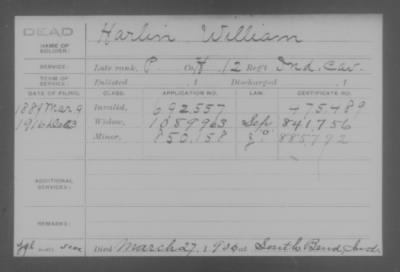 DEAD
NAME OF SOLDIER: Harlin William
SERVICE: Late rank, P. Co. H, 12 Reg't Ind. Cav.
TERM OF SERVICE: Enlisted , 1 Discharged , 1
DATE OF FILING. CLASS. APPLICATION NO. LAW. CERTIFICATE NO.
1889 Mar. 9 Invalid, 692557 475489
1916 Dec 23 Widow, 1089963 Sep 841756
Minor, 850158 885792
ADDITIONAL SERVICES:
REMARKS:
Died March 27, 1 at South Bend, Ind.